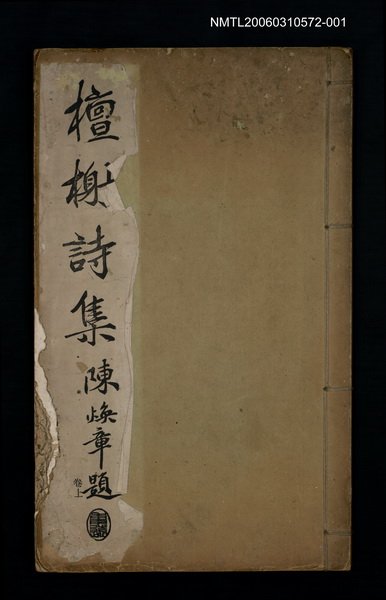 NMTL20060310572-001
檀榭詩集
陳煥章題
卷上